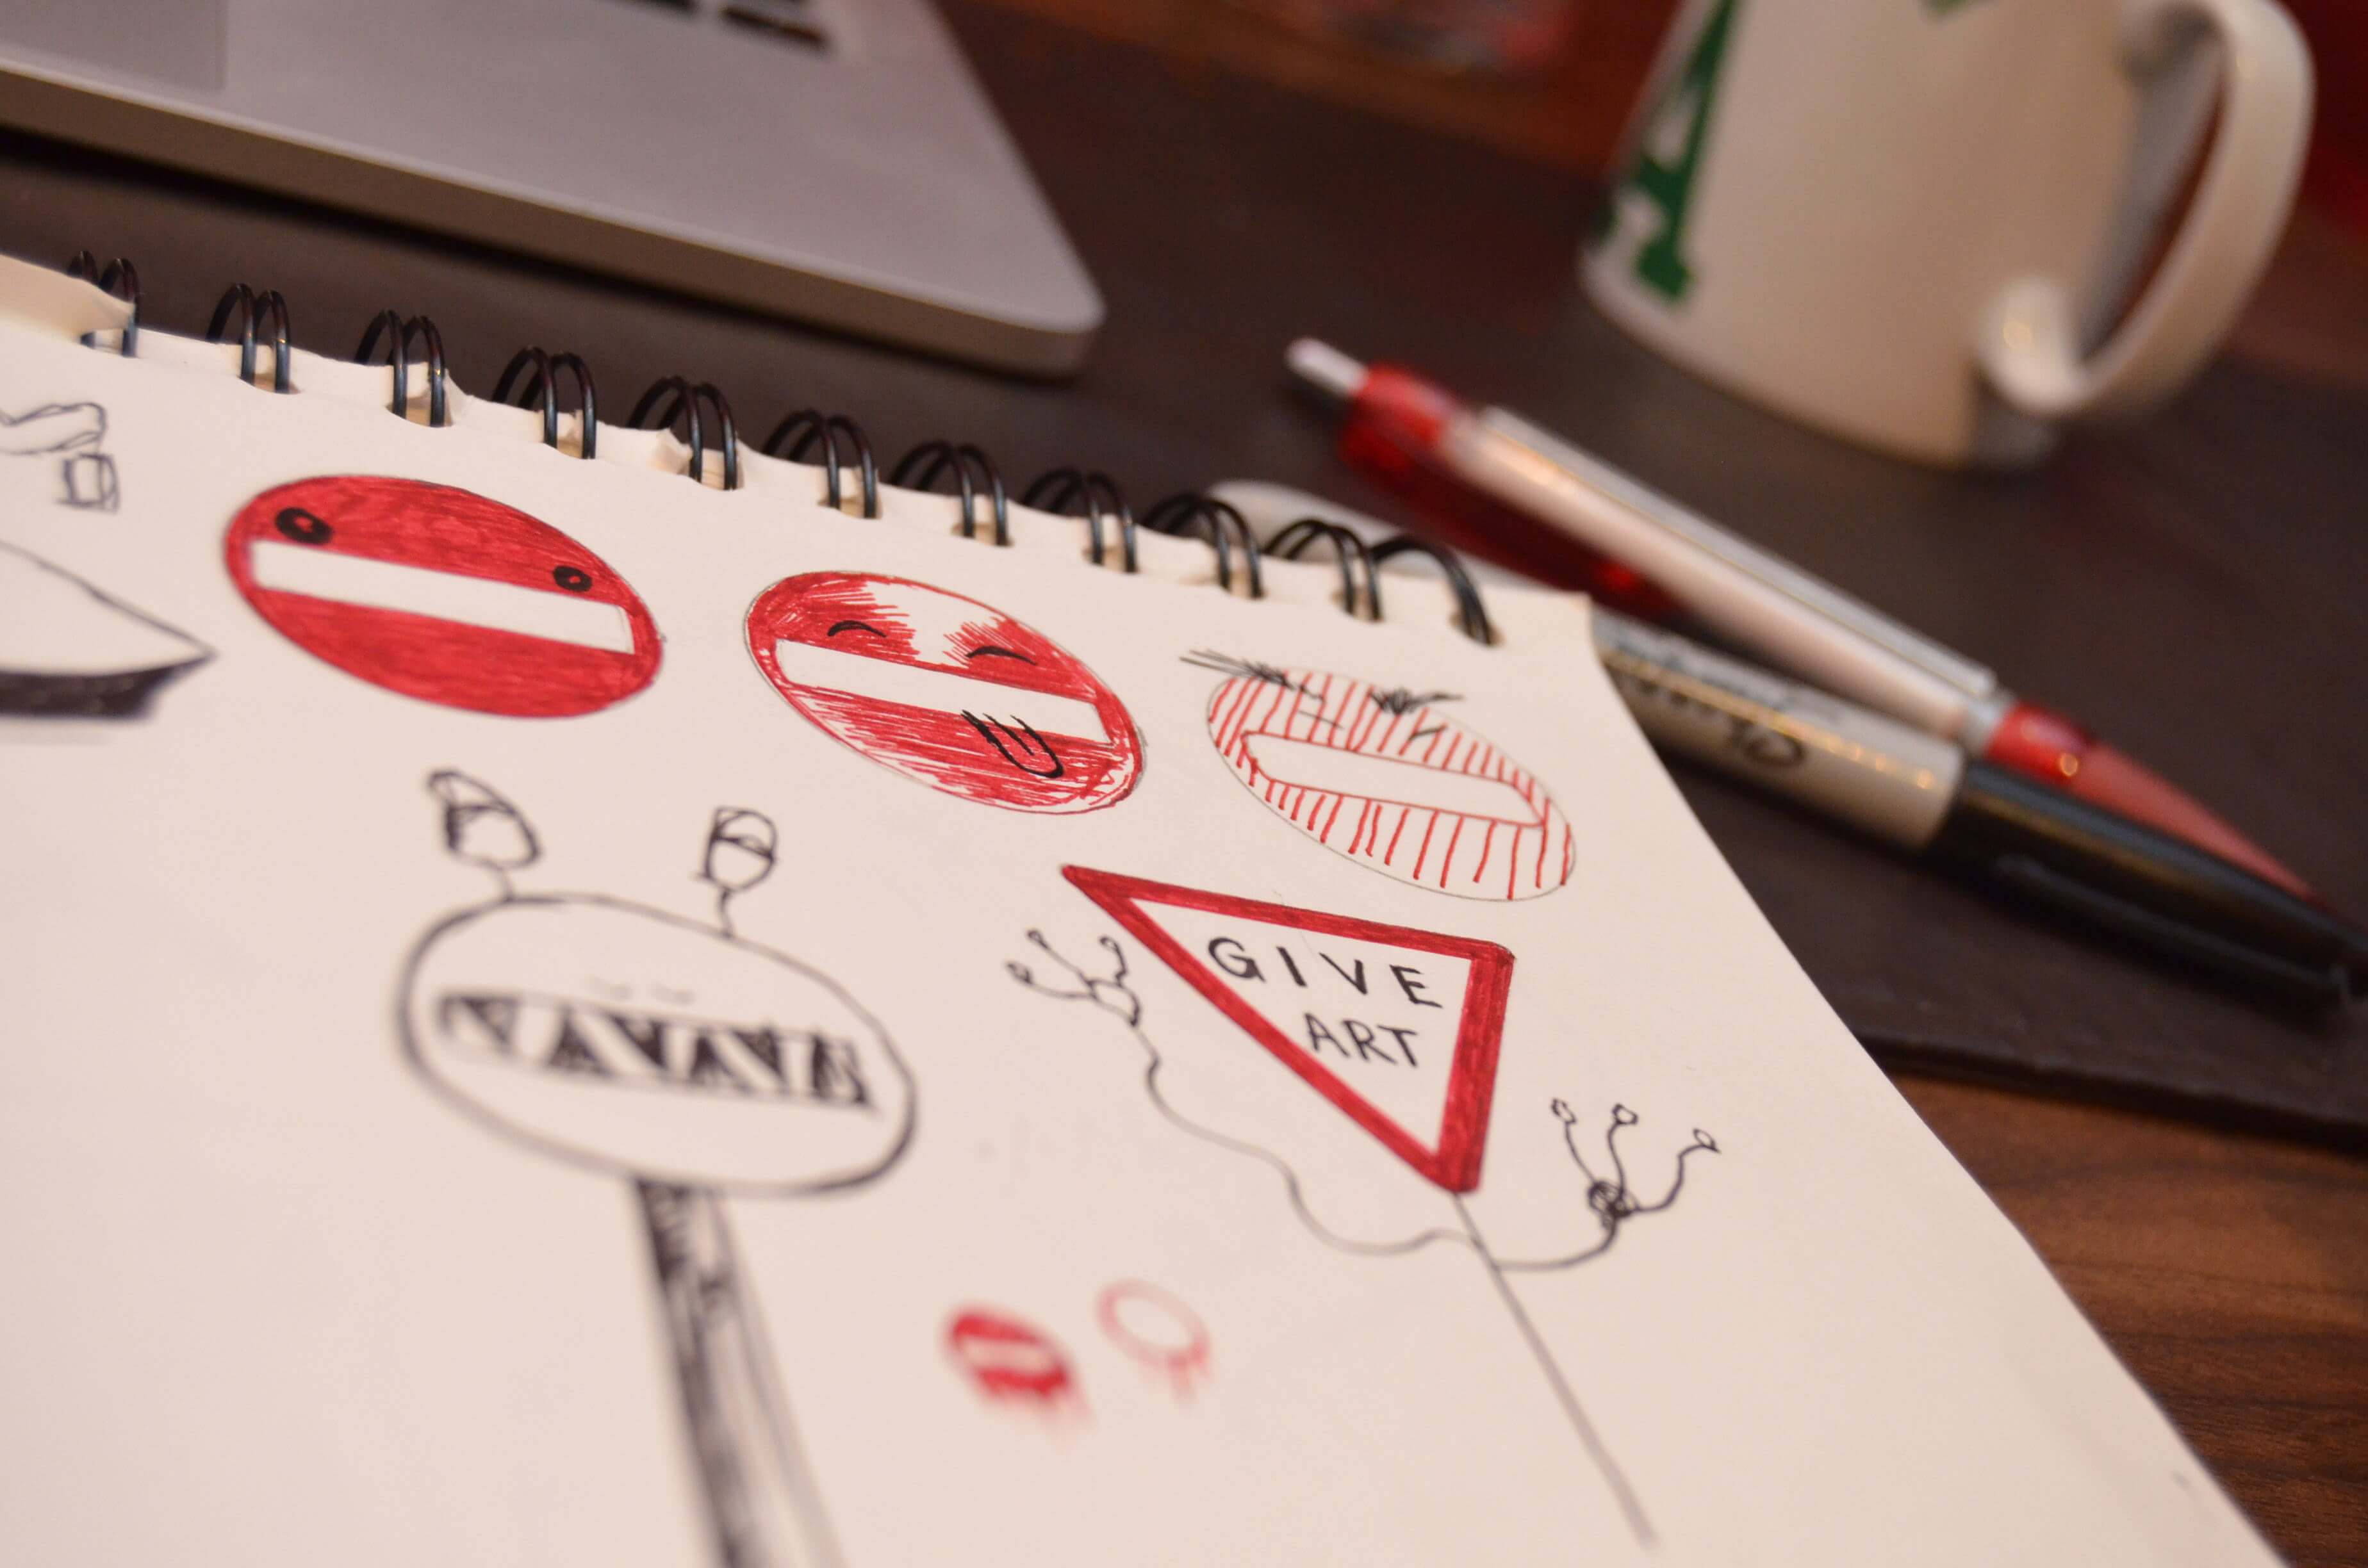 GIVE
ART